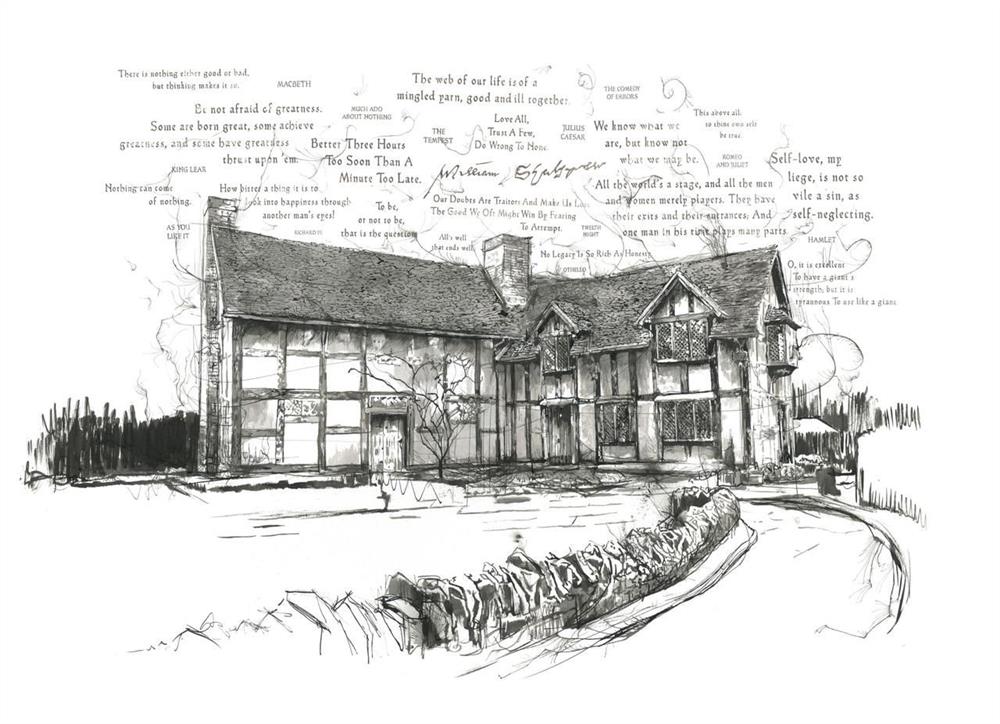 There is nothing either good or bad,
but thinking makes it so.
MACBETH
The web of our life is of a
mingled yarn, good and ill together.
THE COMEDY
OF ERRORS
Be not afraid of greatness.
Some are born great, some achieve
greatness, and some have greatness
thrust upon 'em.
MUCH ADO
ABOUT NOTHING
Better Three Hours
Too Soon Than A
Minute Too Late.
THE
TEMPEST
Love All,
Trust A Few,
Do Wrong To None.
JULIUS
CAESAR
We know what we
are, but know not
what we may be.
This above all:
to thine own self
be true.
ROMEO
AND JULIET
Self-love, my
liege, is not so
vile a sin, as
self-neglecting.
KING LEAR
William
Nothing can come
of nothing.
How bitter a thing it is to
look into happiness through
another man's eyes!
To be,
or not to be,
that is the question
Our Doubts Are Traitors And Make Us Lose
The Good We Oft Might Win By Fearing
To Attempt.
All the world's a stage, and all the men
and women merely players. They have
their exits and their entrances; And
one man in his time plays many parts
AS YOU
LIKE IT
RICHARD
All's well
that ends well
TWELFTH
NIGHT
No Legacy Is So Rich As Honesty
OTHELLO
HAMLET
O, it is excellent
To have a giant's
strength; but it is
tyrannous To use like a giant